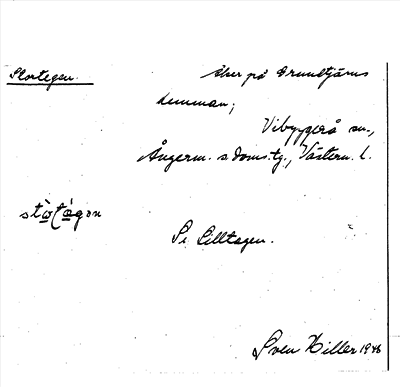 Stortegen.
Åker på Grundtjärns
hemman;
Vibyggerå sn.,
Ångerm. s. doms.tg., Västern. l.
Se Lilltegen.
Sven Hiller 1946